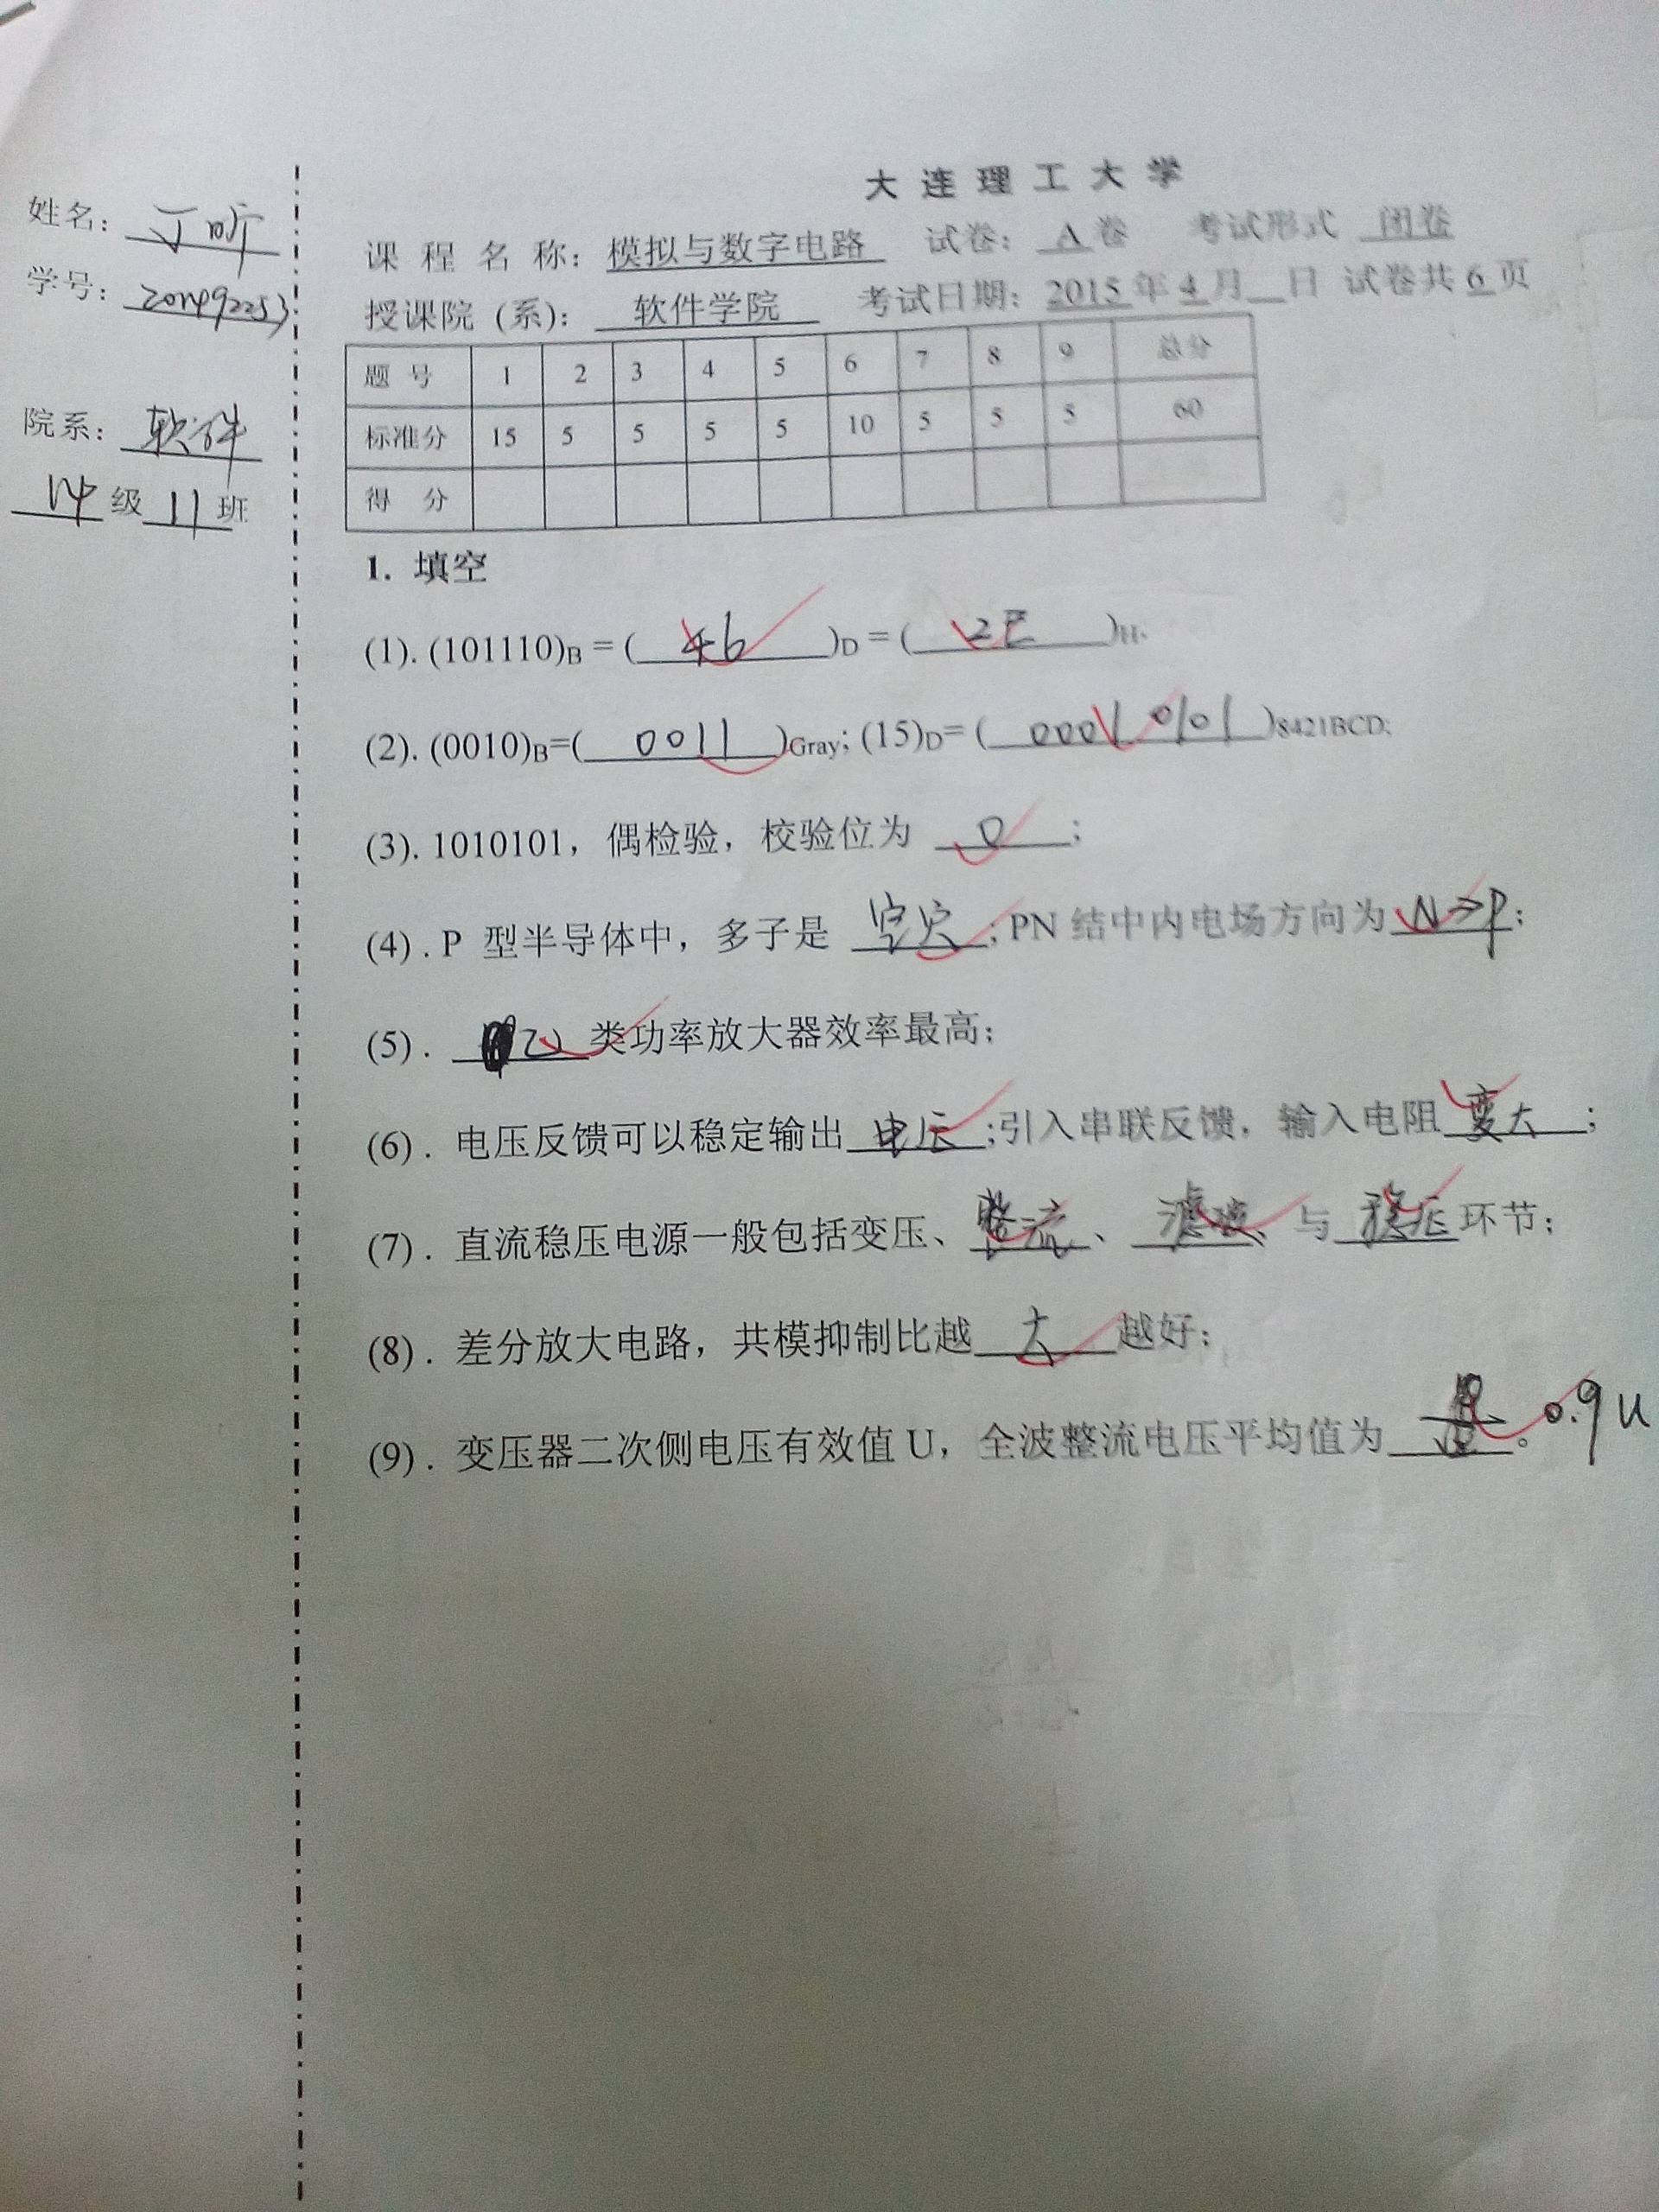 大连理工大学
姓名：丁昕
课程名称：模拟与数字电路 试卷：A卷 考试形式 闭卷
学号：201492253
授课院 (系)：软件学院 考试日期：2015年4月__日 试卷共6页
题号 1 2 3 4 5 6 7 8 9 总分
标准分 15 5 5 5 5 10 5 5 5 60
得分
院系：软件
14级11班
1. 填空
(1). (101110)B = ( 46 )D = ( 2E )H.
(2). (0010)B=( 0011 )Gray; (15)D= ( 0001 0101 )8421BCD;
(3). 1010101，偶检验，校验位为 0 ;
(4) . P 型半导体中，多子是 空穴 ; PN 结中内电场方向为 N→P ;
(5) . 乙 类功率放大器效率最高;
(6) . 电压反馈可以稳定输出 电压 ;引入串联反馈，输入电阻 变大 ;
(7) . 直流稳压电源一般包括变压、整流、滤波、与 稳压 环节;
(8) . 差分放大电路，共模抑制比越 大 越好;
(9) . 变压器二次侧电压有效值 U，全波整流电压平均值为 。0.9U